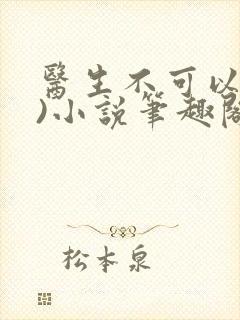 醫生不可以
)小說筆趣閣
松本泉